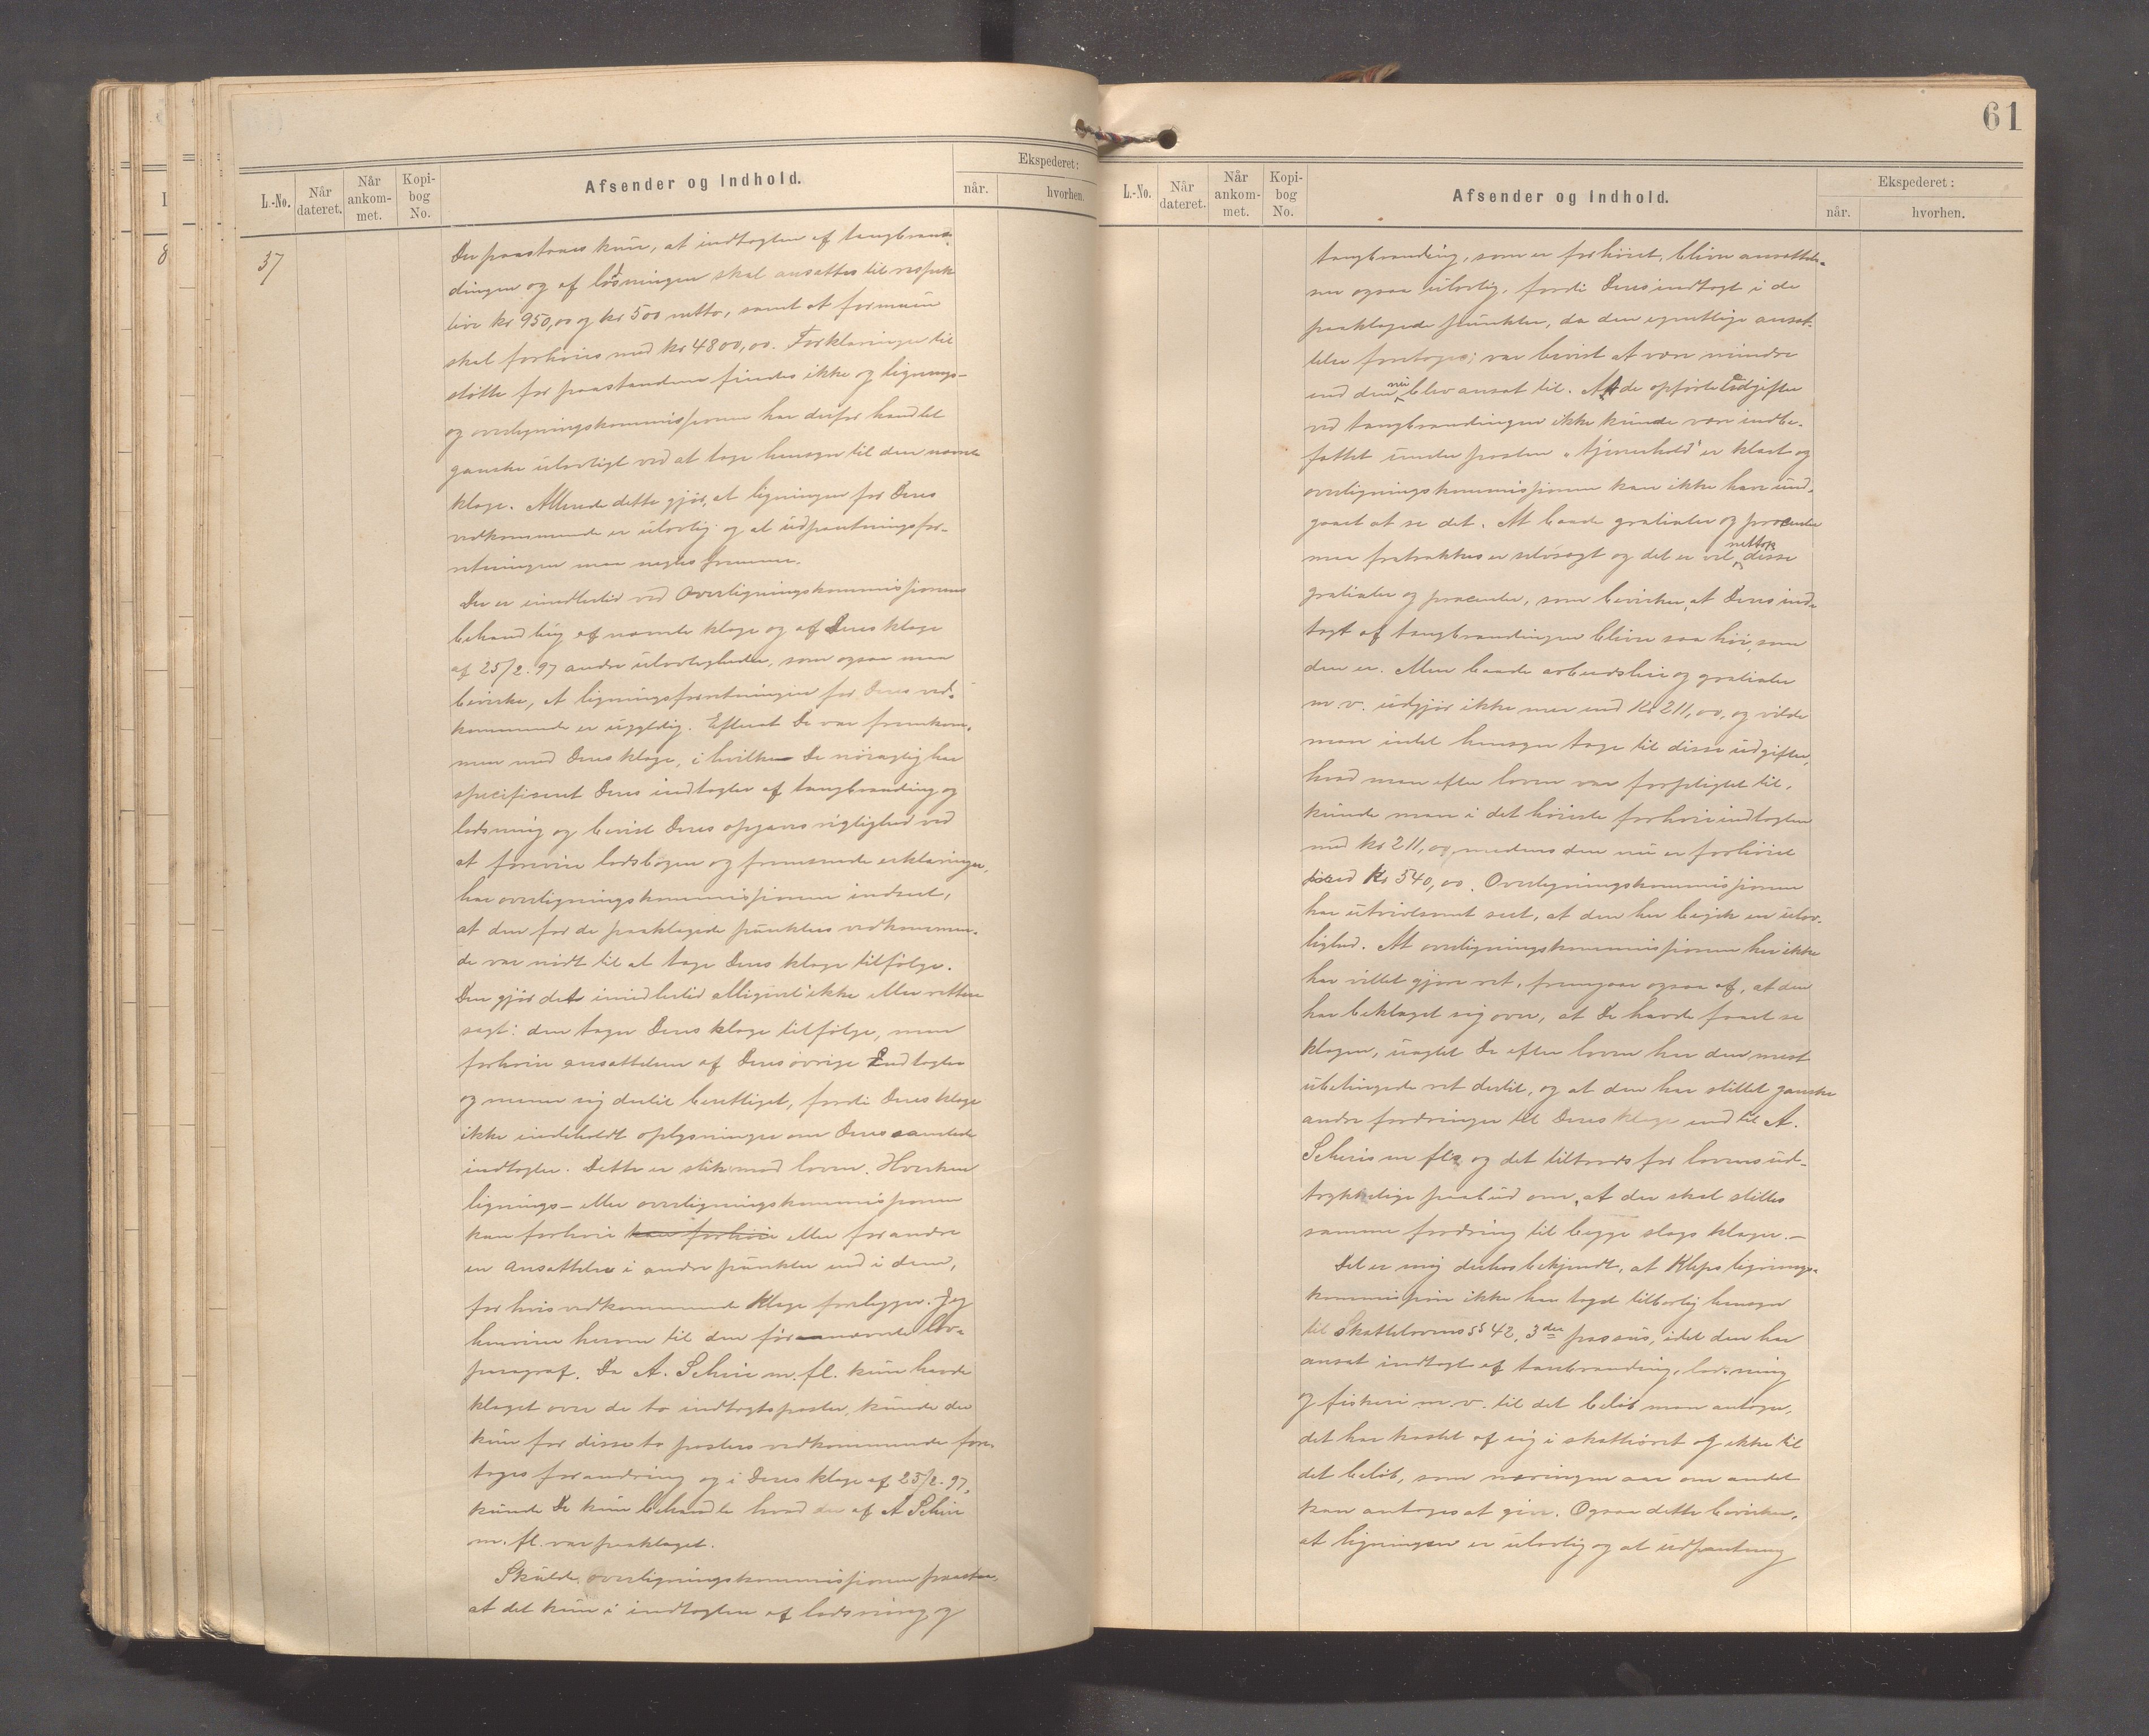 L.-No.
Når dateret.
Når ankommet.
Kopibog No.
Afsender og Indhold.
Ekspederet:
når.
hvorhen.
37
Der paastaaes kun, at indtægten af tangbræn-
dingen og af lodsningen skal ansættes til respek-
tive kr 950,00 og kr 500 netto, samt at formuen
skal forhøies med kr 4800,00. Forklaringer til
støtte for paastandene findes ikke og lignings-
og overligningskommissionen har derfor handlet
ganske ulovligt ved at tage hensyn til den nævnte
klage. Allerede dette gjør, at ligningen for Deres
vedkommende er ulovlig og at udpantningsfor-
retningen maa negtes fremme.
Der er imidlertid ved Overligningskommissionens
behandling af nævnte klage og af Deres klage
af 25/2. 97 andre ulovligheder, som ogsaa maa
bevirke, at ligningsforretningen for Deres ved-
kommende er ugyldig. Efterat De var fremkom-
men med Deres klage, i hvilken De nøiagtig har
specificeret Deres indtægter af tangbrænding og
lodsning og bevist Deres opgaves rigtighed ved
at forevise lodsbogen og fremsende erklæringer,
har overligningskommissionen indseet,
at den for de paaklagede punkters vedkommen-
de var nødt til at tage Deres klage tilfølge.
Den gjør det imidlertid alligevel ikke eller rettere
sagt: den tager Deres klage tilfølge, men
forhøier ansættelsen af Deres øvrige Indtægter
og mener sig dertil berettiget, fordi Deres klage
ikke indeholdt oplysninger om Deres samlede
indtægter. Dette er stik mod loven. Hverken
lignings- eller overligningskommissionen
kan forhøie kan forhøie eller forandre
en Ansættelse i andre punkter end i dem,
for hvis vedkommende Klage foreligger. Jeg
henviser herom til den førnævnte lov-
paragraf. Da A. Scheie m. fl. kun havde
klaget over de to indtægtsposter, kunde der
kun for disse to posters vedkommende fore-
tages forandring og i Deres klage af 25/2. 97,
kunde De kun behandle hvad der af A Scheie
m. fl. var paaklaget.
Skulde overligningskommissionen paastaa,
at det kun i indtægten af lodsning og
61
L.-No.
Når dateret.
Når ankommet.
Kopibog No.
Afsender og Indhold.
Ekspederet:
når.
hvorhen.
tangbrænding, som er forhøiet, bliver ansættel-
sen ogsaa ulovlig, fordi Deres indtægt i de
paaklagede punkter, da den egentlige ansæt-
telse foretoges, var bevist at være mindre
end den nu blev ansat til. At de opførte Udgifter
ved tangbrændingen ikke kunde være indbe-
fattet under posten "tjenerhold" er klart og
overligningskommissionen kan ikke have und-
gaaet at se det. At baade gratialer og procenter
maa fratrækkes er selvsagt og det er vel nettop disse
gratialer og procenter, som bevirker, at Deres ind-
tægt af tangbrændingen bliver saa høi, som
den er. Men baade arbeidsløn og gratialer
m. v. udgjør ikke mer end Kr 211,00, og vilde
man intet hensyn tage til disse udgifter,
hvad man efter loven var forpligtet til,
kunde man i det høieste forhøie indtægten
med kr 211,00, medens den nu er forhøiet
med Kr 540,00. Overligningskommissionen
har utvivlsomt seet, at den her begik en ulov-
lighed. At overligningskommissionen her ikke
har villet gjøre ret, fremgaar ogsaa af, at den
har beklaget sig over, at De havde faaet se
klagen, uagtet De efter loven har den mest
ubetingede ret dertil, og at den har stillet ganske
andre fordringer til Deres klage end til A.
Scheies m fl's og det tiltrods for lovens ud-
trykkelige paabud om, at der skal stilles
samme fordring til begge slags klager.—
Det er mig derhos bekjendt, at Kleps lignings-
kommission ikke har taget tilbørlig hensyn
til Skattelovens §§ 42, 3die passus, idet den har
ansat indtægt af tangbrænding, lodsning
og fiskeri m. v. til det beløb man antager,
det har kastet af sig i skatteaaret og ikke til
det beløb, som næringen aar om andet
kan antages at give. Ogsaa dette bevirker,
at ligningen er ulovlig og at udpantning